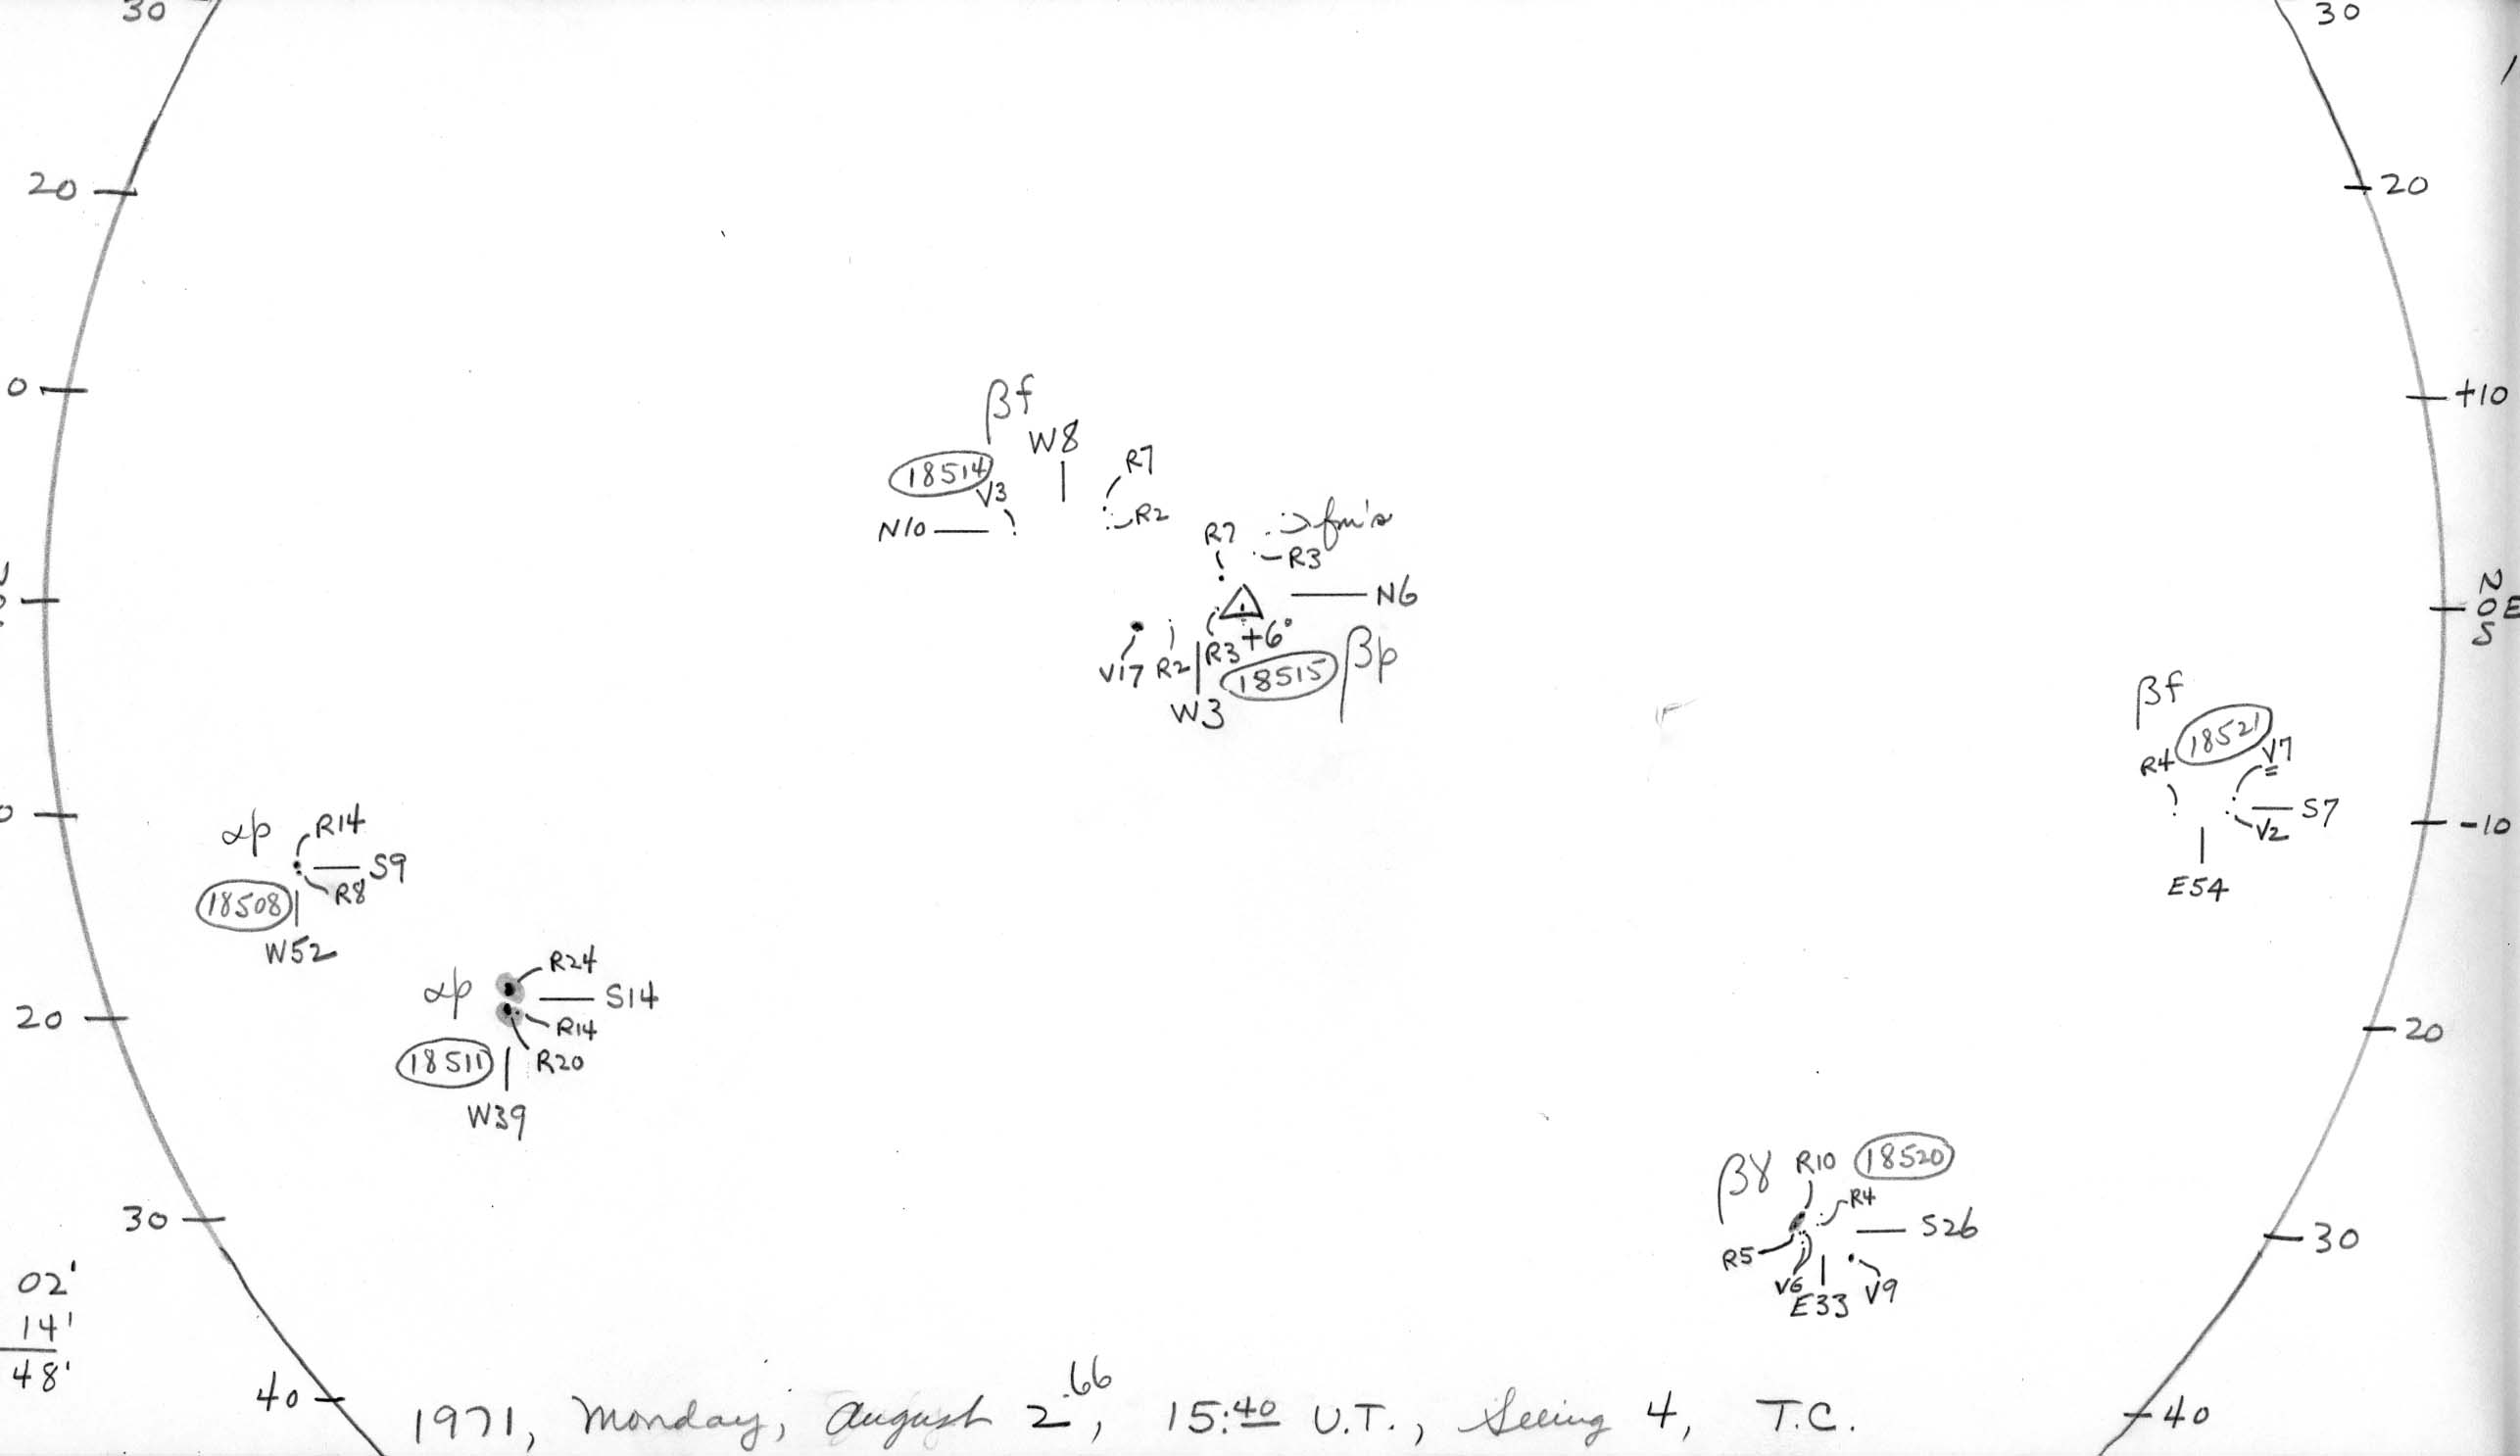 30 30
20 20
βf
W8
18514 R7
V3 R2
N10
0 +10
R7 fm's
R3
N6
+6°
V17 R2 R3 18515 βp
W3
N
0 E
S
βf
18521 V7
R4
S7
V2
E54
-10
αp R14
S9
R8
18508
W52
αp R24
S14
R14
18511 R20
W39
20 20
βγ R10 18520
R4
S26
R5
V6 V9
E33
30 30
02'
14'
48'
40 40
1971, Monday, August 2.66, 15:40 U.T., Seeing 4, T.C.